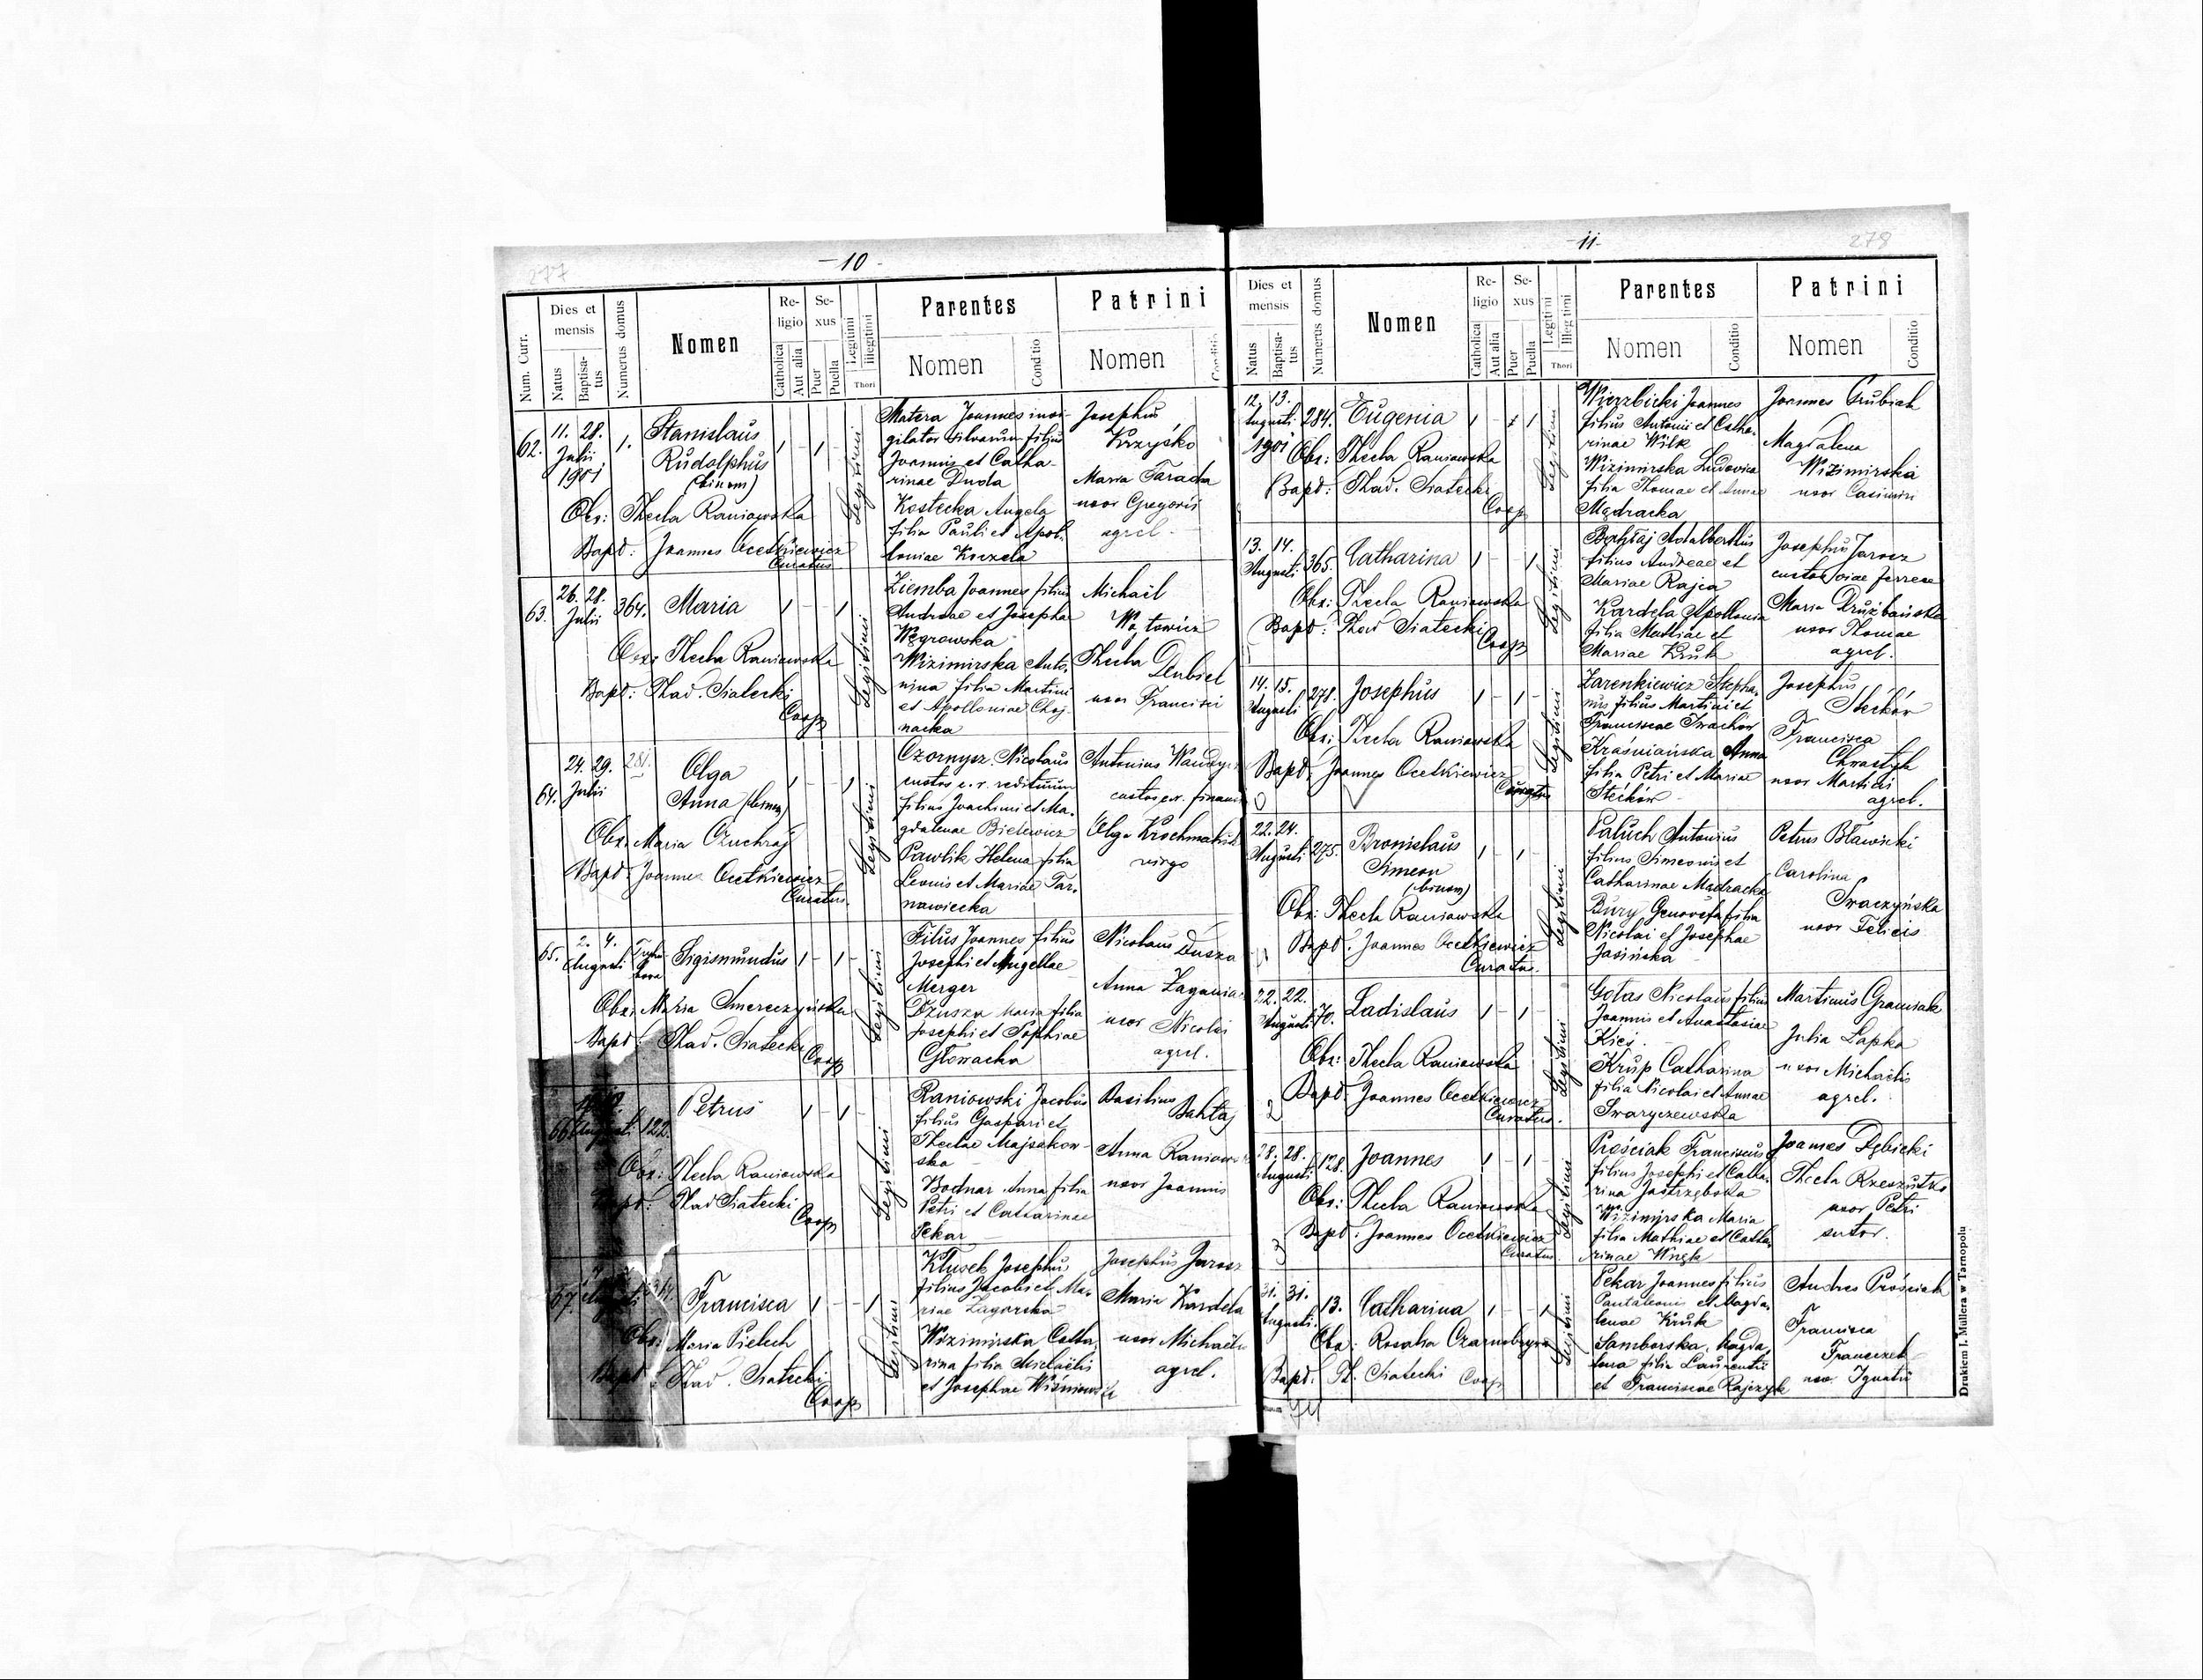 277
-10-
Num. Curr.
Dies et mensis
Natus
Baptisatus
Numerus domus
Nomen
Religio
Catholica
Aut alia
Sexus
Puer
Puella
Legitimi
Illegitimi
Thori
Parentes
Nomen
Conditio
Patrini
Nomen
62.
11. 28.
Julii
1901
1.
Stanislaus
Rudolphus
(binom)
Obs: Thecla Raniowska
Bapt: Joannes Ocetkiewicz
Curatus
Legitimi
Matera Joannes invi-
gilator silvarum filius
Joannis et Catha-
rinae Duda
Kostecka Angela
filia Pauli et Apol-
loniae
Josephus
Krzyśko
Maria Farada
uxor Gregorii
agrcl.
63.
26. 28.
Julii
364.
Maria
Obs: Thecla Raniowska
Bapt: Thad. Siatecki
Coop
Legitimi
Ziemba Joannes filius
Andreae et Josepha
Węgrowska
Wizimirska Anto-
nina filia Martini
et Apolloniae Choj-
nacka
Michaël
Wojtowicz
Thecla Dubiel
uxor Francisci
64.
24. 29.
Julii
281.
Olga
Anna (binom)
Obs: Maria Czuchraj
Bapt: Joannes Ocetkiewicz
Curatus.
Legitimi
Czornysz Nicolaus
custos c. r. redituum
filius Joachimi et Ma-
gdalenae Bielewicz
Pawlik Helena filia
Leonis et Mariae Tar-
nawiecka
Antonius
custos c. r. financ
Olga
virgo
65.
2. 4.
Augusti
Sigismundus
Obs: Maria Smereczyńska
Bapt: Thad. Siatecki
Coop
Legitimi
Filus Joannes filius
Josephi et Angellae
Merger
Dżusza Maria filia
Josephi et Sophiae
Głowacka
Nicolaus Dusza
Anna
uxor Nicolai
agrcl.
66
August.
122.
Petrus
Obs: Thecla Raniowska
Bapt: Thad Siatecki
Coop
Legitimi
Raniowski Jacobus
filius Gaspari et
Theclae Majsakow-
ska
Bodnar Anna filia
Petri et Catharinae
Pekar
Basilius
Bahtaj
Anna Raniowska
uxor Joannis
67.
Francisca
Obs: Maria Pielech
Bapt: Thad. Siatecki
Coop
Legitimi
Kłusek Josephus
filius Jacobi et Ma-
riae Zagórska
Wizimirska Catha-
rina filia Michaëlis
et Josephae Wiśniowska
Josephus Jarosz
Maria Kardela
uxor Michaëlis
agrcl.
278
-11-
Dies et mensis
Natus
Baptisatus
Numerus domus
Nomen
Religio
Catholica
Aut alia
Sexus
Puer
Puella
Legitimi
Illegitimi
Thori
Parentes
Nomen
Conditio
Patrini
Nomen
Conditio
12. 13.
Augusti
1901
284.
Eugenia
Obs: Thecla Raniowska
Bapt: Thad. Siatecki
Coop
Legitimi
Wierzbicki Joannes
filius Antonii et Catha-
rinae Wilk
Wizimirska Ludovica
filia Thomae et Annae
Mądracka
Joannes Grubiak
Magdalena
Wizimirska
uxor Casimiri
13. 14.
Augusti
365.
Catharina
Obs: Thecla Raniowska
Bapt: Thad Siatecki
Coop
Legitimi
Bahtaj Adalbertus
filius Andreae et
Mariae Rajca
Kardela Apollonia
filia Mathiae et
Mariae Kruk
Josephus Jarosz
custos viae ferreae
Maria Drużbańska
uxor Thomae
agrcl.
14. 15.
Augusti
278.
Josephus
Obs: Thecla Raniowska
Bapt: Joannes Ocetkiewicz
Curatus
Legitimi
Zarenkiewicz Stepha-
nus filius Martini et
Franciscae
Kraśniańska Anna
filia Petri et Mariae
Stećków
Josephus
Stećków
Francisca
Chrastek
uxor Martini
agrcl.
22. 24.
Augusti
275.
Bronislaus
Simeon
(binom)
Obs: Thecla Raniowska
Bapt: Joannes Ocetkiewicz
Curatus.
Legitimi
Paluch Antonius
filius Simeonis et
Catharinae Mądracka
Bury Genovefa filia
Nicolai et Josephae
Jasińska
Petrus Bławicki
Carolina
Swaczyńska
uxor Felicis
22. 22.
Augusti
70.
Ladislaus
Obs: Thecla Raniowska
Bapt: Joannes Ocetkiewicz
Curatus.
Legitimi
Gołas Nicolaus filius
Joannis et Anastasiae
Kies
Krup Catharina
filia Nicolai et Annae
Swaryczewska
Martinus Graniak
Julia Łapka
uxor Michaëlis
agrcl.
28. 28.
Augusti
128.
Joannes
Obs: Thecla Raniowska
Bapt: Joannes Ocetkiewicz
Curatus
Legitimi
Prościak Franciscus
filius Josephi et Catha-
rina Jastrzębska
Wizimirska Maria
filia Mathiae et Catha-
rinae Wnęk
Joannes Dębicki
Thecla Rzeszutko
uxor Petri
sutor.
31. 31.
Augusti
13.
Catharina
Obs: Rosalia
Bapt. Th. Siatecki Coop
Legitimi
Pekar Joannes filius
Pantaleonis et Magda-
lenae Kruk
Samborska Magda-
lena filia Laurentii
et Franciscae Rajczyk
Andres Prościak
Francisca
Franczek
uxor Ignatii
Drukiem J. Mullera w Tarnopolu